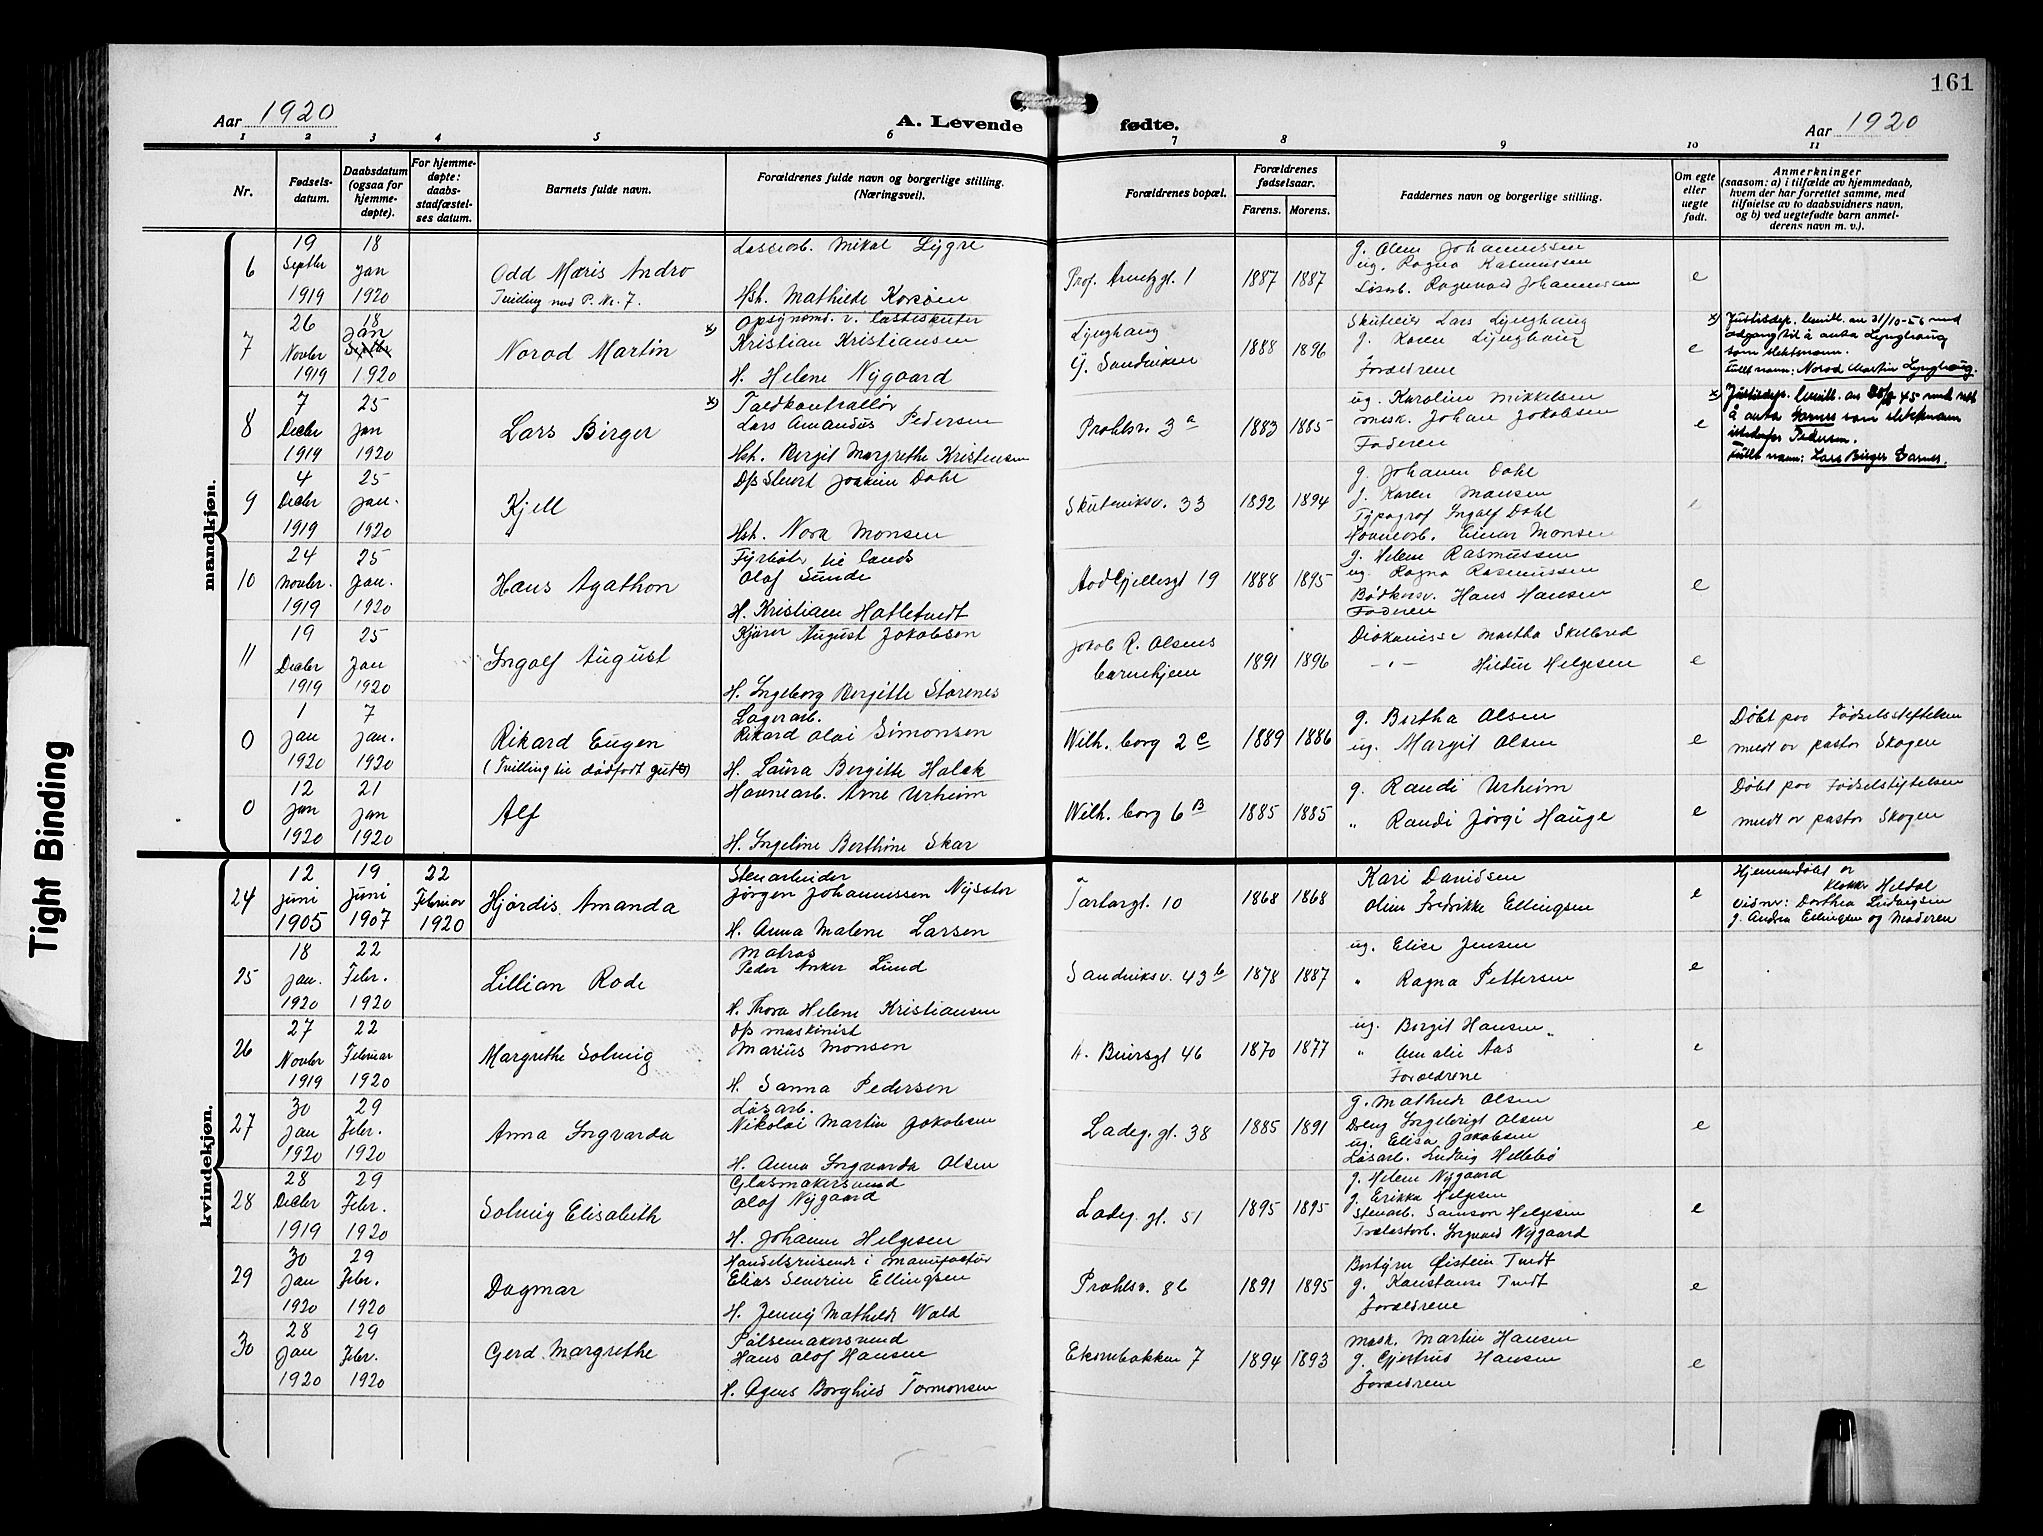 161
Aar 1920
A. Levende fødte.
Aar 1920
1 2 3 4 5 6 7 8 9 10 11
Nr.
Fødsels-
datum.
Daabsdatum
(ogsaa for
hjemme-
døpte).
For hjemme-
døpte:
daabs-
stadfæstel-
ses datum.
Barnets fulde navn.
Forældrenes fulde navn og borgerlige stilling.
(Næringsvei).
Forældrenes bopæl.
Forældrenes
fødselsaar.
Farens. Morens.
Faddernes navn og borgerlige stilling.
Om egte
eller
uegte
født.
Anmerkninger
(saasom: a) i tilfælde av hjemmedaab,
hvem der har forrettet samme, med
tilføielse av to daabsvidners navn,
og b) ved uegtefødte barn anmel-
derens navn m. v.).
mandkjøn.
6
19 Septbr 1919
18 Jan 1920
Odd Mæris Andro
Mikal Lygre
Hst. Mathilde Korsøen
1
1887 1887
g. Olea Johannessen
ug. Ragna Rasmussen
Løsarb. Ragnvald Johannessen
e
7
26 Novbr 1919
18 Jan 1920
Norod Martin
x) Kristian Kristiansen
H. Helene Nygaard
Lynghaug
G. Sandviken
1888 1896
Lars Lynghaug
g. Karen Lynghaug
Forældrene
e
x) Justisdep. bevilt. av 31/10-56 med
adgang til å anta Lynghaug
som slektsnavn.
Fullt navn: Norod Martin Lynghaug.
8
7 Decbr 1919
25 Jan 1920
Lars Birger
x) Toldkontrollør
Lars Amandus Pedersen
Hst. Bergit Margrethe Kristensen
Prahlsv. 3 a
1883 1885
ug. Karoline Mikkelsen
mask. Johan Jakobsen
Faderen
e
x) Justisdep. bevilt. av 45 med rett
å anta Garnes som slektsnavn
istedenfor Pedersen.
Fullt navn: Lars Birger Garnes.
9
4 Decbr 1919
25 Jan. 1920
Kjell
D/s Stuert Joakim Dahl
Hst. Nora Monsen
Skuteviksv. 33
1892 1894
g. Johanne Dahl
g. Karen Monsen
Typograf Ingolf Dahl
Havnearb. Einar Monsen
e
10
24 Novbr. 1919
25 Jan. 1920
Hans Agathon
Fyrbøter til lands
Olaf Sunde
H. Kristiane Hatletvedt
19
1888 1895
g. Helene Rasmussen
ug. Ragna Rasmussen
Bødkersv. Hans Hansen
Faderen
e
11
19 Decbr 1919
25 Jan 1920
Ingolf August
Kjører August Jakobsen
H. Ingeborg Bergitte Storenes
Jakob R. Olsens
barnehjem
1891 1896
Diakonisse Martha Skelbred
–"– Hildur Helgesen
e
0
1 Jan 1920
7 Jan. 1920
Rikard Eugen
(Tvilling til dødfødt gut)
Lagerarb.
Rikard Olai Simonsen
H. Laura Bergitte Halck
Wilh. borg 2 c
1889 1886
g. Bertha Olsen
ug. Margit Olsen
e
Døbt paa Fødselsstiftelsen
av pastor Skogen
0
12 Jan 1920
21 Jan 1920
Alf
Havnearb. Arne Urheim
H. Ingeline Berthine Skar
Wilh. borg 6 B
1885 1885
g. Randi Urheim
" Randi Jørgi Hauge
e
Døbt paa Fødselsstiftelsen
av pastor Skogen
kvindekjøn.
24
12 Juni 1905
19 Juni 1907
22 Februar 1920
Hjørdis Amanda
Stenarbeider
Jørgen Johannessen Nyseter
H. Anna Malene Larsen
Tartargt. 10
1868 1868
Kari Davidsen
Oline Fredrikke Ellingsen
e
Hjemmedøbt av
klokker Hildal
vidner: Dorthea Ludvigsen
g. Andrea Ellingsen og Moderen
25
18 Jan. 1920
22 Febr. 1920
Lillian Rode
Matros
Peder Anker Lund
H. Thora Helene Kristiansen
Sandviksv. 43 b
1878 1887
ug. Elise Jensen
" Ragna Pettersen
e
26
27 Novbr 1919
22 Februar 1920
Margrethe Solveig
D/s maskinist
Marius Monsen
H. Sanna Pedersen
46
1870 1877
ug. Borgit Hansen
" Amalie Aas
Forældrene
e
27
30 Jan 1920
29 Febr. 1920
Anna Ingvarda
Løsarb.
Nikolai Martin Jakobsen
H. Anna Ingvarda Olsen
Ladeg. gt. 38
1885 1891
g. Mathilde Olsen
Dreng Ingebrigt Olsen
ug. Elisa Jakobsen
Løsarb. Ludvig Hellebø
e
28
28 Decbr 1919
29 Febr. 1920
Solveig Elisabeth
Glasmakersvend
Olaf Nygaard
H. Johanne Helgesen
Ladeg. gt. 51
1895 1895
g. Helene Nygaard
g. Erikka Helgesen
Stenarb. Samson Helgesen
Trælastarb. Ingvard Nygaard
e
29
30 Jan 1920
29 Febr. 1920
Dagmar
Handelsreisende i manufactur
Elias Severin Ellingsen
H. Jenny Mathilde Wold
Prahlsv. 8b
1891 1895
Bestyrer Øistein Tvedt
g. Konstanse Tvedt
Forældrene
e
30
28 Jan 1920
29 Febr. 1920
Gerd Margrethe
Pølsemakersvend
Hans Olaf Hansen
H. Agnes Borghild Tormonsen
Ekrenbakken 7
1894 1893
mask. Martin Hansen
g. Gjertrud Hansen
Forældrene
e
Tight Binding